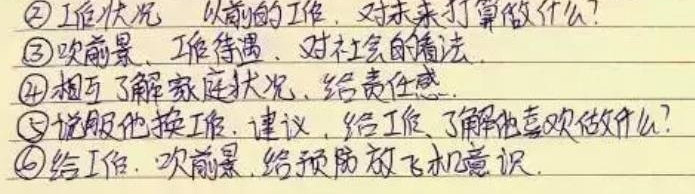 ②工作状况 以前的工作、对未来打算做什么？
③吹前景、工作待遇、对社会的看法.
④相互了解家庭状况、给责任感.
⑤说服他换工作.建议、给工作、了解他喜欢做什么？
⑥给工作.吹前景.给预防放飞机意识.